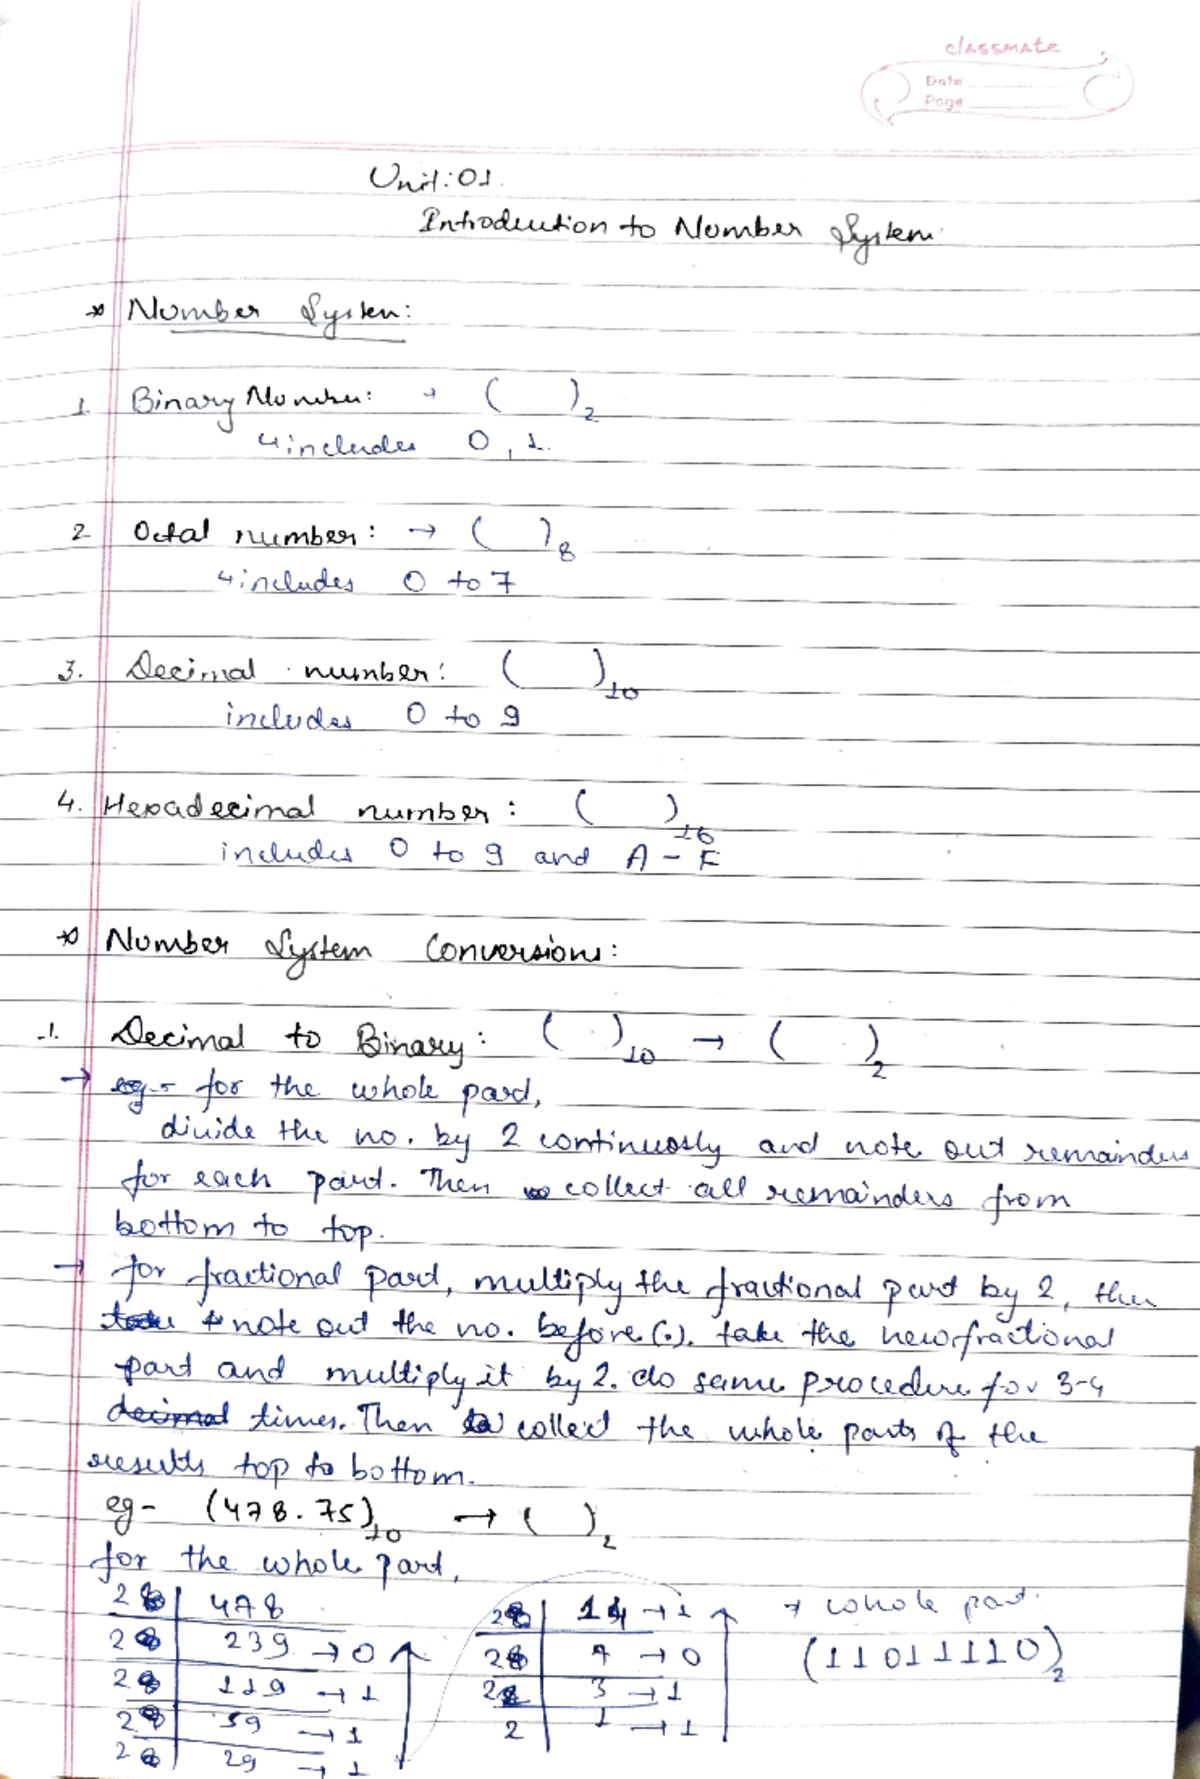 classmate
Date
Page
Unit:01.
Introduction to Number System
* Number System:
1. Binary Number: → ( )₂
↳ includes 0, 1.
2 Octal number: → ( )₈
↳ includes 0 to 7
3. Decimal number: ( )₁₀
includes 0 to 9
4. Hexadecimal number: ( )₁₆
includes 0 to 9 and A - F
* Number System Conversions:
1. Decimal to Binary: ( )₁₀ → ( )₂
→ eg - for the whole part,
divide the no. by 2 continuosly and note out remainders
for each part. Then collect all remainders from
bottom to top.
→ for fractional part, multiply the fractional part by 2, then
note out the no. before (.). take the new fractional
part and multiply it by 2. do same procedure for 3-4
decimal times. Then collect the whole parts of the
results top to bottom.
eg- (478.75)₁₀ → ( )₂
for the whole part,
2 | 478
2 | 239 → 0
2 | 119 → 1
2 | 59 → 1
2 | 29 → 1
2 | 14 → 1
2 | 7 → 0
2 | 3 → 1
2 | 1 → 1
→ whole part.
(11011110)₂